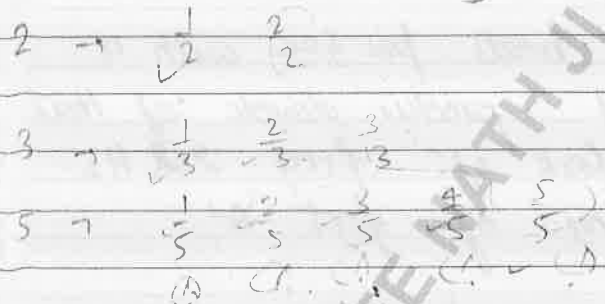 2 → 1/2 2/2
3 → 1/3 2/3 3/3
5 → 1/5 2/5 3/5 4/5 5/5
ENATH JI